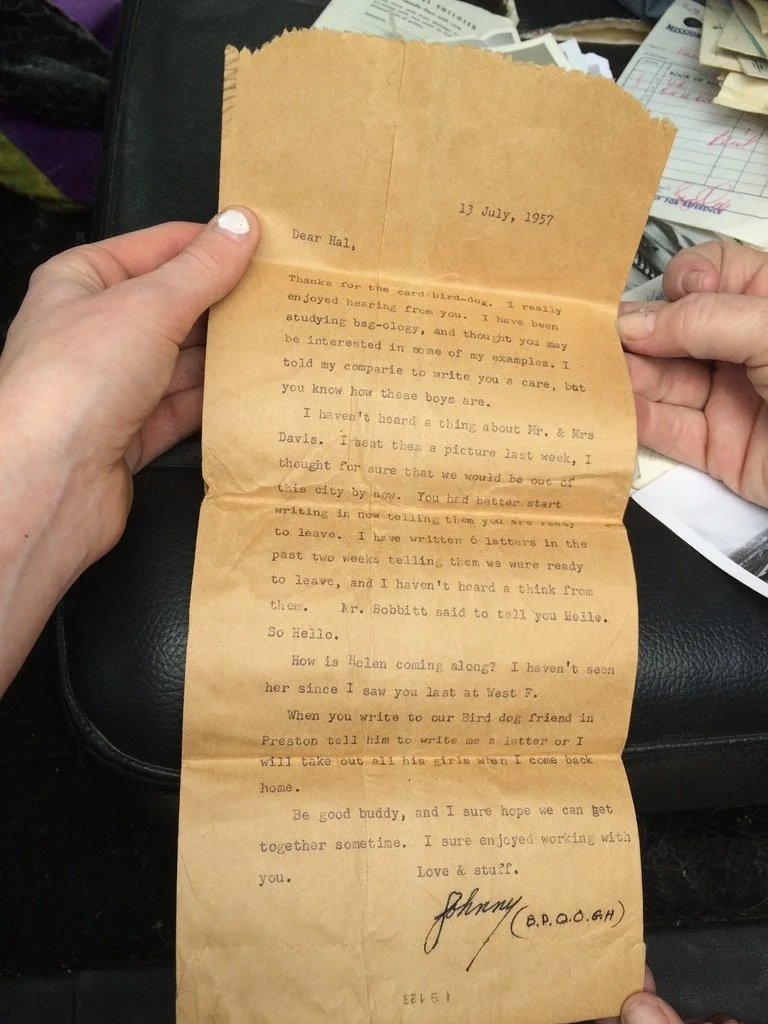 13 July, 1957
Dear Hal,
Thanks for the card bird-dog. I really
enjoyed hearing from you. I have been
studying bag-ology, and thought you may
be interested in some of my examples. I
told my comparie to write you a care, but
you know how these boys are.
I haven't heard a thing about Mr. & Mrs
Davis. I sent them a picture last week, I
thought for sure that we would be out of
this city by now. You had better start
writing in now telling them you are ready
to leave. I have written 6 letters in the
past two weeks telling them we were ready
to leave, and I haven't heard a think from
them. Mr. Bobbitt said to tell you Hello.
So Hello.
How is Helen coming along? I haven't seen
her since I saw you last at West F.
When you write to our Bird dog friend in
Preston tell him to write me a letter or I
will take out all his girls when I come back
home.
Be good buddy, and I sure hope we can get
together sometime. I sure enjoyed working with
you. Love & stuff.
Johnny (B.P.Q.O.G.H)
19123
ENCLOSED
MISSION
FOR REFERENCE